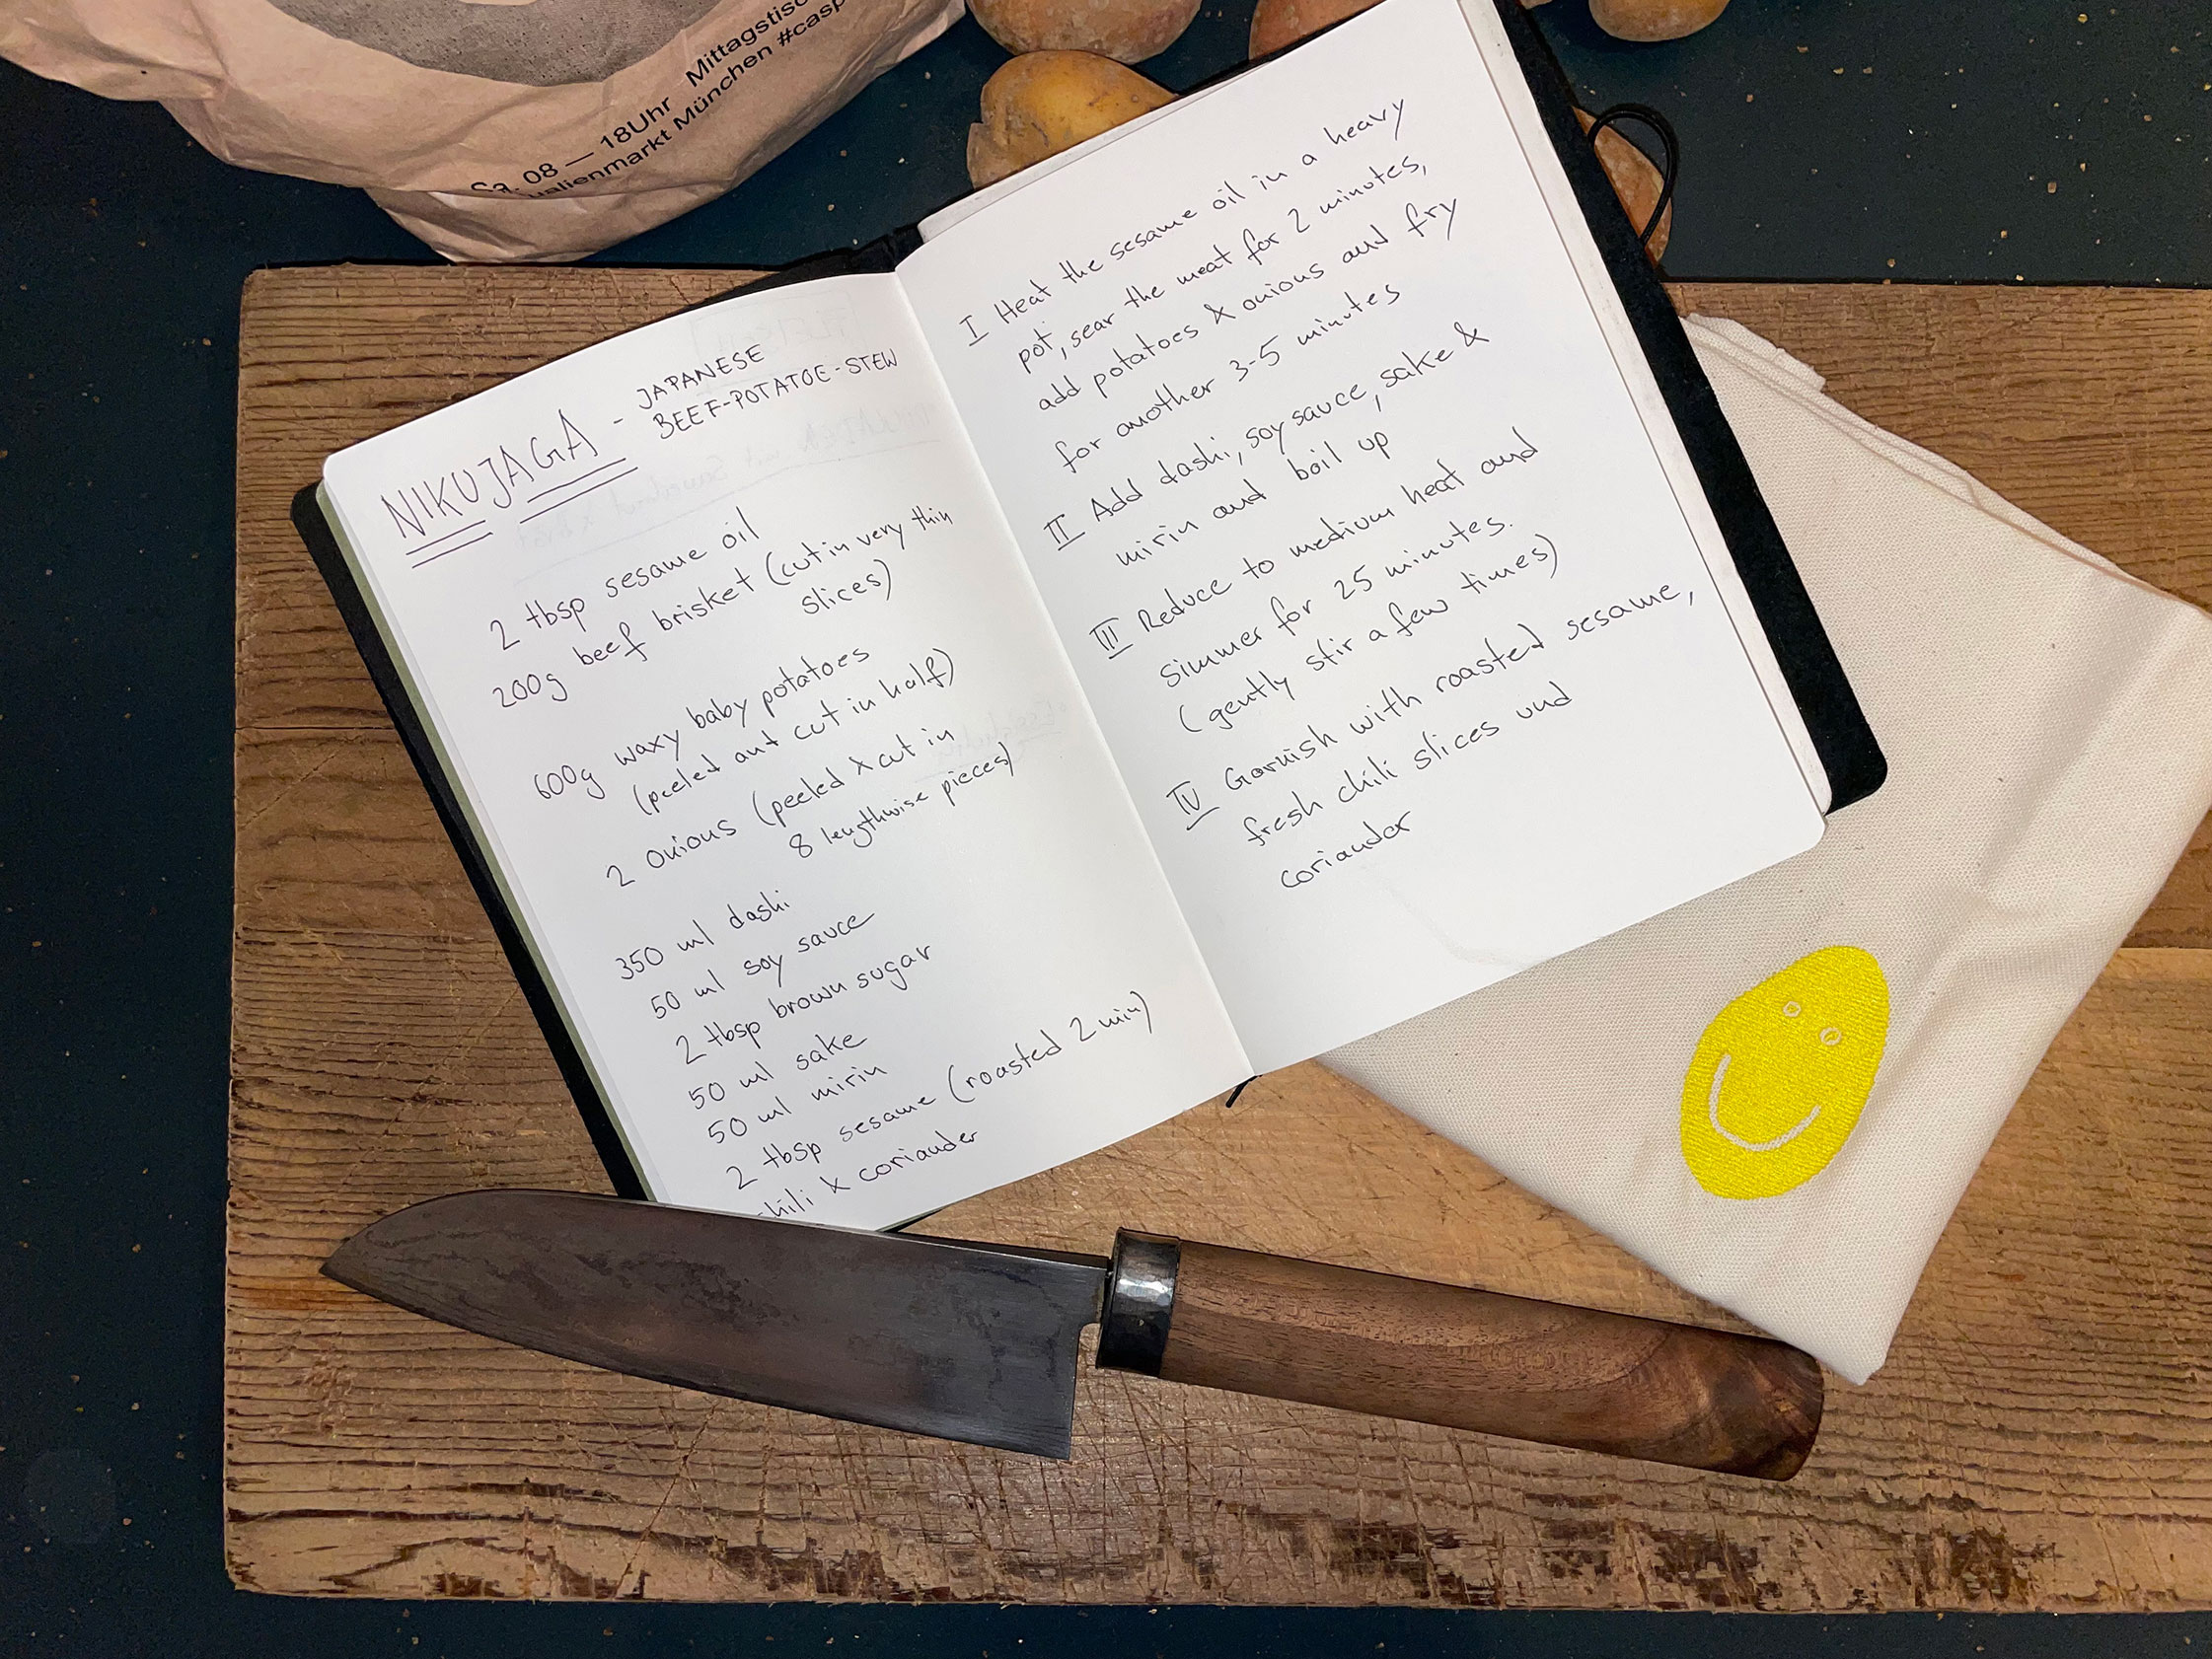 Sa. 08 — 18Uhr Mittagstisc
ualienmarkt München #casp
NIKUJAGA - JAPANESE
BEEF-POTATOE-STEW
2 tbsp sesame oil
200g beef brisket (cut in very thin
slices)
600g waxy baby potatoes
(peeled ant cut in half)
2 Onions (peeled & cut in
8 lengthwise pieces)
350 ml dashi
50 ml soy sauce
2 tbsp brown sugar
50 ml sake
50 ml mirin
2 tbsp sesame (roasted 2 min)
chili & coriander
I Heat the sesame oil in a heavy
pot, sear the meat for 2 minutes,
add potatoes & onions and fry
for another 3-5 minutes
II Add dashi, soy sauce, sake &
mirin and boil up
III Reduce to medium heat and
simmer for 25 minutes.
(gently stir a few times)
IV Garnish with roasted sesame,
fresh chili slices und
coriander